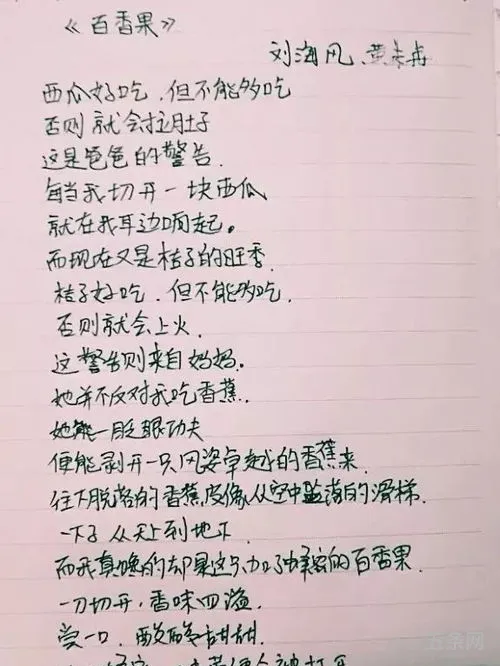 《百香果》
刘海风、黄
西瓜好吃，但不能多吃
否则就会拉肚子
这是爸爸的警告.
每当我切开一块西瓜
就在我耳边响起。
而现在又是桔子的旺季.
桔子好吃，但不能多吃.
否则就会上火.
这警告则来自妈妈.
她并不反对我吃香蕉.
她能一眨眼功夫
便能剥开一只风姿卓越的香蕉来.
往下脱落的香蕉皮像从空中坠落的滑梯.
一下子从天上到地下.
而我真馋的却是这只的百香果.
一刀切开，香味四溢.
尝一口，酸酸甜甜.
五条网